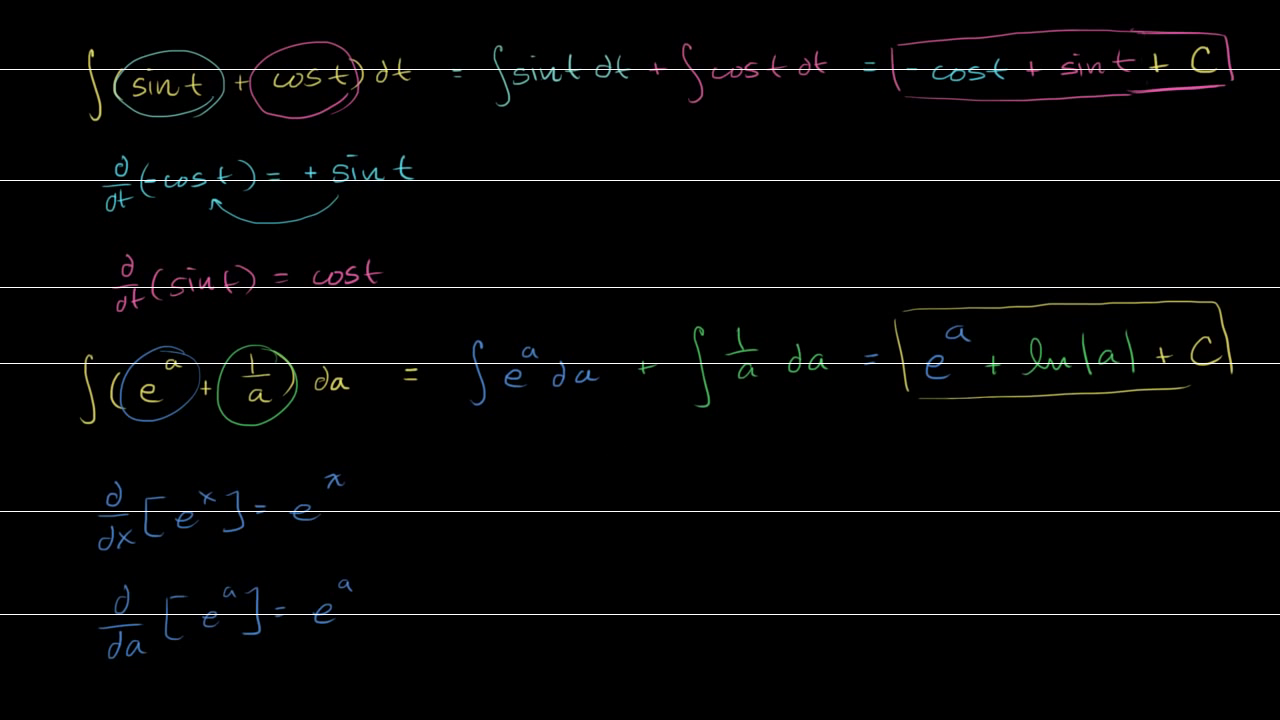 ∫(sin t + cos t) dt = ∫sin t dt + ∫cos t dt = - cos t + sin t + C
∂/∂t (-cos t) = + sin t
∂/∂t (sin t) = cos t
∫(e^a + 1/a) da = ∫ e^a da + ∫ 1/a da = e^a + ln|a| + C
∂/∂x [e^x] = e^x
∂/∂a [e^a] = e^a